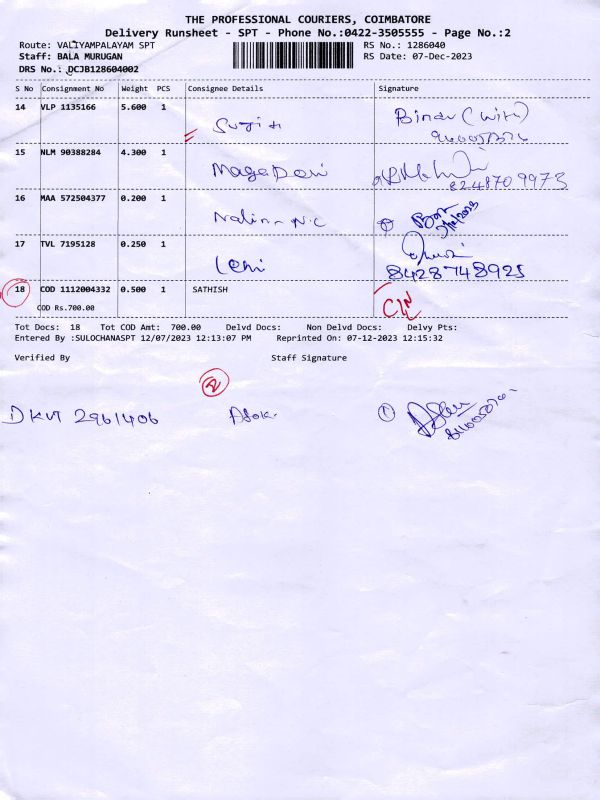 THE PROFESSIONAL COURIERS, COIMBATORE
Delivery Runsheet - SPT - Phone No.:0422-3505555 - Page No.:2
Route: VALIYAMPALAYAM SPT
Staff: BALA MURUGAN
DRS No.: DCJB128604002
RS No.: 1286040
RS Date: 07-Dec-2023
S No Consignment No Weight PCS Consignee Details Signature
14 VLP 1135166 5.600 1
15 NLM 90388284 4.300 1 MageDevi
8248709973
16 MAA 572504377 0.200 1 Nalina N.C
17 TVL 7195128 0.250 1
8428748925
18 COD 1112004332 0.500 1 SATHISH
COD Rs.700.00
Tot Docs: 18 Tot COD Amt: 700.00 Delvd Docs: Non Delvd Docs: Delvy Pts:
Entered By :SULOCHANASPT 12/07/2023 12:13:07 PM Reprinted On: 07-12-2023 12:15:32
Verified By Staff Signature
2
DKM 2961406 Asok 1